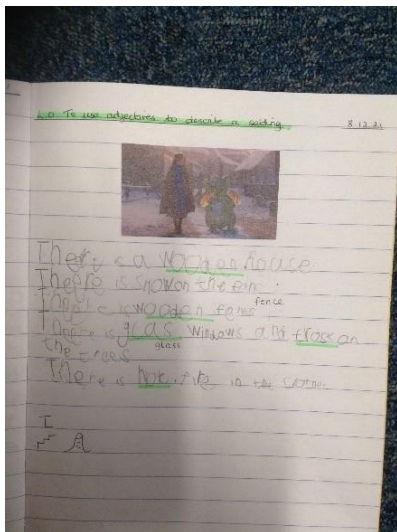 L.O. To use adjectives to describe a setting. 8.12.21
There is a wooden house
There is snow on the
There is wooden fens
fence
There is glas windows and frost on
glass
the trees
There is hot fire in the corner
I